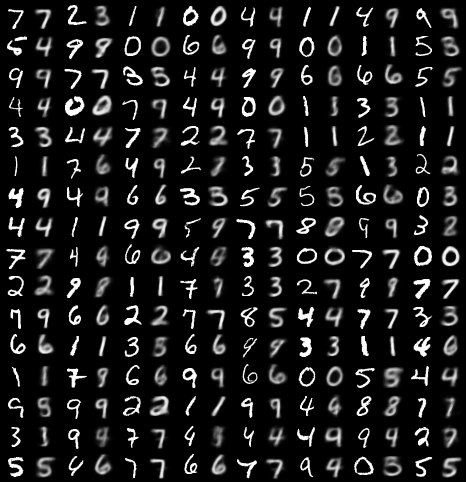 7 7 2 3 1 1 0 0 4 4 1 1 4 9 9 9
5 4 9 8 0 0 6 6 9 9 0 0 1 1 5 3
9 9 7 7 3 3 4 4 9 9 6 6 6 6 5 5
4 4 0 0 7 9 4 9 0 0 1 1 3 3 1 1
3 3 4 4 7 7 2 2 7 7 1 1 2 2 1 1
1 1 7 6 4 9 2 7 3 3 5 5 1 3 2 2
4 9 4 9 6 6 3 5 5 5 5 5 6 6 0 3
4 4 1 1 9 9 5 9 7 7 8 8 9 9 3 2
7 7 4 9 6 0 4 9 3 3 0 0 7 7 0 0
2 2 9 8 1 1 7 9 3 3 2 7 9 9 7 7
7 9 6 6 2 2 7 7 8 5 4 4 7 7 3 3
6 6 1 1 3 5 6 6 9 9 3 3 1 1 4 6
1 1 7 9 6 6 9 9 6 6 0 0 5 5 4 4
9 5 9 9 2 2 1 1 9 9 4 9 8 8 7 7
3 3 9 4 7 7 4 9 4 4 4 9 9 4 2 7
5 5 4 6 7 7 6 6 7 7 9 4 0 3 5 5